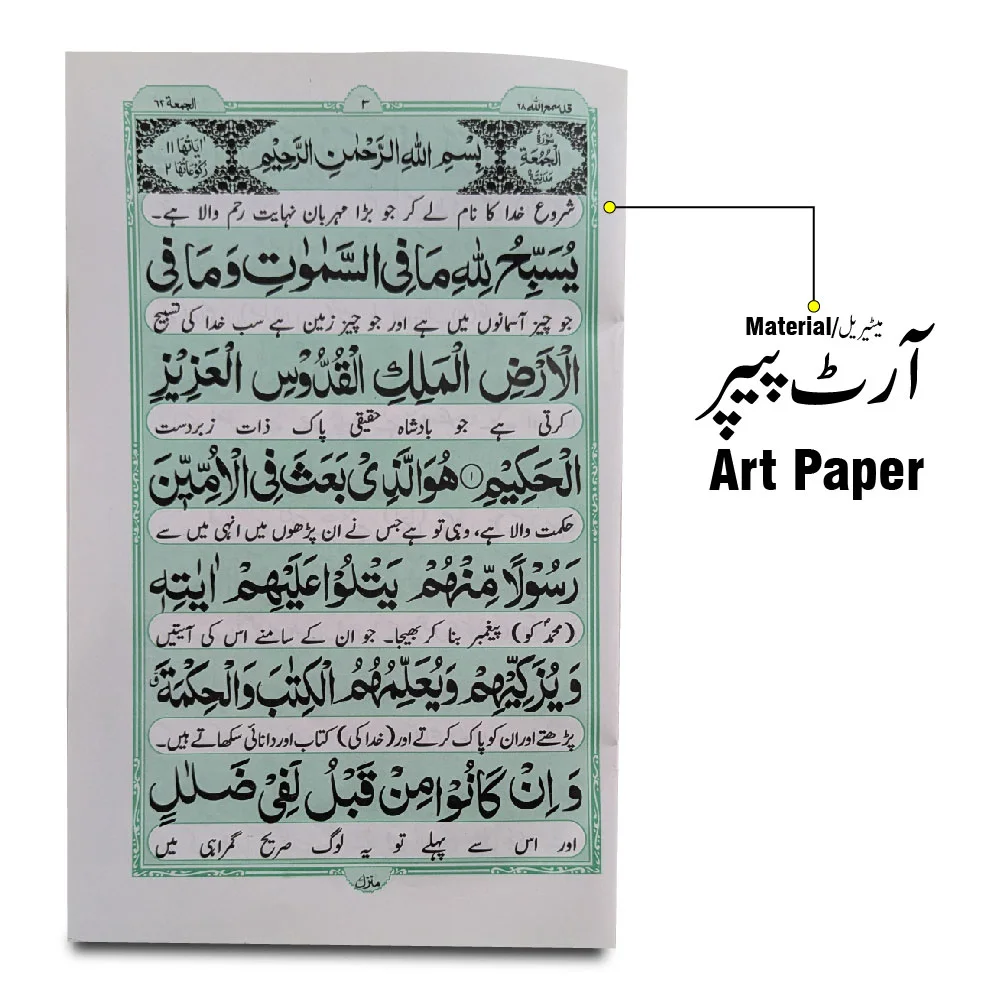 قد سمع الله ٢٨
٣
الجمعة ٦٢
سُوْرَةُ الْجُمُعَةِ مَدَنِيَّةٌ
بِسْمِ اللّٰهِ الرَّحْمٰنِ الرَّحِيْمِ
اٰيَاتُهَا ١١
رُكُوْعَاتُهَا ٢
شروع خدا کا نام لے کر جو بڑا مہربان نہایت رحم والا ہے۔
يُسَبِّحُ لِلّٰهِ مَا فِى السَّمٰوٰتِ وَمَا فِى
جو چیز آسمانوں میں ہے اور جو چیز زمین ہے سب خدا کی تسبیح
الْاَرْضِ الْمَلِكِ الْقُدُّوْسِ الْعَزِيْزِ
کرتی ہے جو بادشاہ حقیقی پاک ذات زبردست
الْحَكِيْمِ ١ هُوَ الَّذِىْ بَعَثَ فِى الْاُمِّيّٖنَ
حکمت والا ہے، وہی تو ہے جس نے ان پڑھوں میں انہی میں سے
رَسُوْلًا مِّنْهُمْ يَتْلُوْا عَلَيْهِمْ اٰيٰتِهٖ
(محمدؐ کو) پیغمبر بنا کر بھیجا۔ جو ان کے سامنے اس کی آیتیں
وَيُزَكِّيْهِمْ وَيُعَلِّمُهُمُ الْكِتٰبَ وَالْحِكْمَةَ ۗ
پڑھتے اور ان کو پاک کرتے اور (خدا کی) کتاب اور دانائی سکھاتے ہیں۔
وَاِنْ كَانُوْا مِنْ قَبْلُ لَفِىْ ضَلٰلٍ
اور اس سے پہلے تو یہ لوگ صریح گمراہی میں
منزل
Material/میٹیریل
آرٹ پیپر
Art Paper